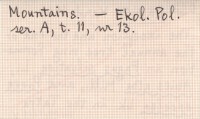 Mountains. — Ekol. Pol.
ser. A, t. 11, nr 13.